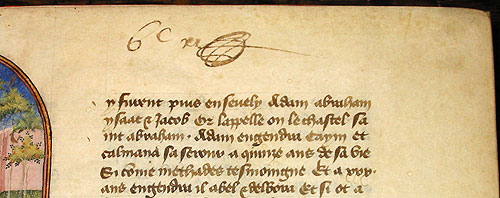 6c xx
y furent puis ensevely Adam abraham
ysaac & Jacob Or lappelle on le chastel sa
int abraham. Adam engendra caym et
calmana sa serour a quinze ans de sa vie
Si come methodes tesmoingne Et a xxx
ans engendra il abel & delbora Et si ot a